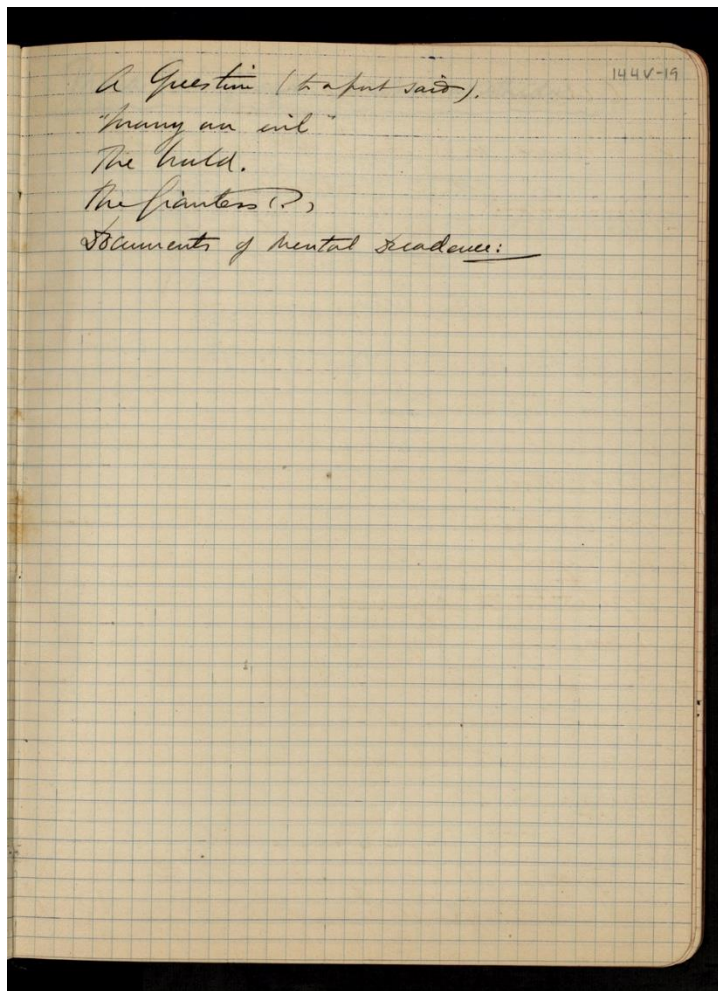 144V-19
A Question (to a port said).
"Many an evil"
The
The Giantess (?)
Documents of Mental Decadence: